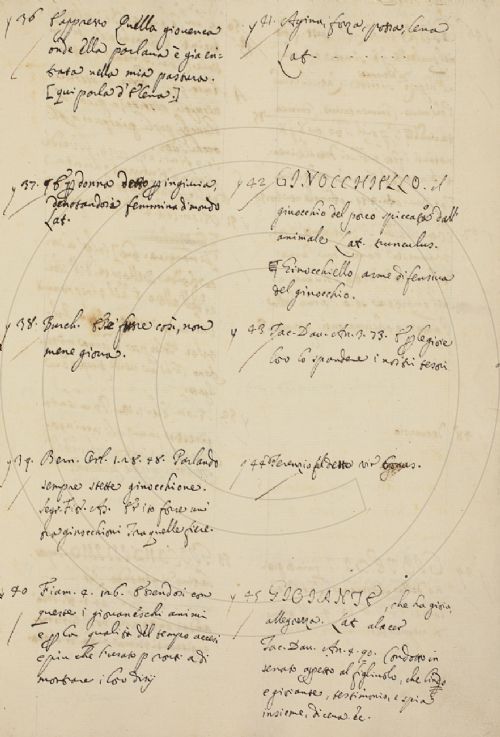 y 36 Appresso Quella giovenca
onde Ella parlava è gia en-
trata nella mia pastura.
[qui parla d'Elena]
y 37. donna detto ingiuria,
denotandosi femmina di mondo
Lat.
y 38. Burch. così, non
mene giova.
y 39. Bern. Orl. 1. 28. 48. Parlando
sempre stette ginocchione.
Segr. Fior. As. fosse un
tra ginocchioni Tra quelle fiere.
y 40 Fiam. 4. 126. con
queste i giovaneschi animi
e la qualità del tempo accesi
e più che l'usato pronti a di
mostrare i loro disij
y 41. Agina, forza, possa, lena
Lat. . . . . . .
y 42 GINOCCHIELLO. il
ginocchio del porco spiccato dall'
animale Lat. trunculus.
¶ Ginocchiello arme difensiva
del ginocchio.
y 43 Tac. Dav. An. 3. 73. gioie
loro lo spandere i nostri tesori
y 44 Terenzio detto vir bonus.
y 45 GIOIANTE, che ha gioia,
allegrezza. Lat. alacer
Tac. Dav. An. 4. 90. Condotto in
senato al figliuolo, che lindo
e gioiante, testimonio, e spia
insieme, diceva &c.